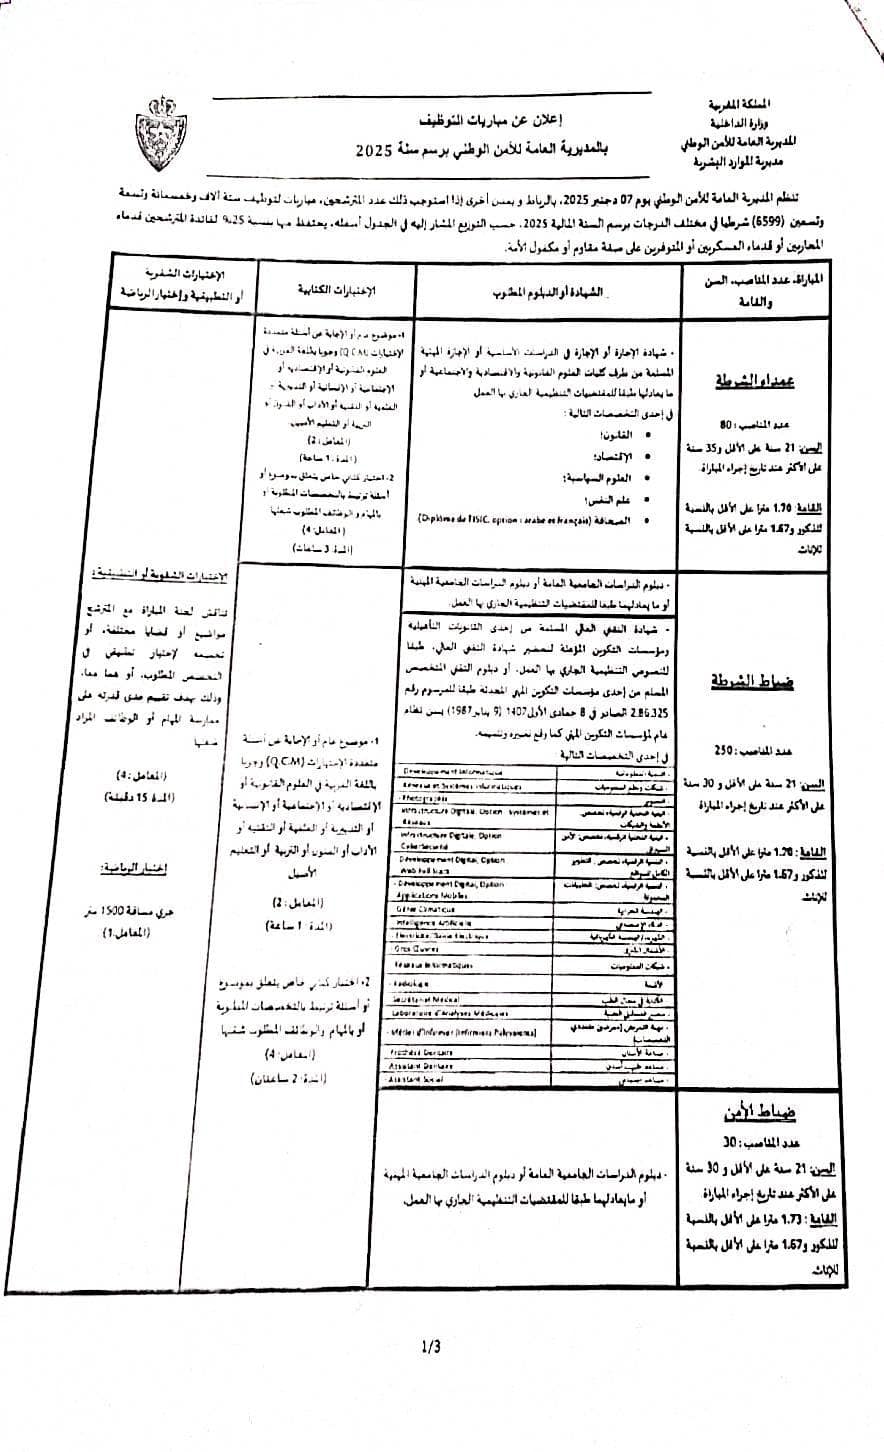 المملكة المغربية
وزارة الداخلية
المديرية العامة للأمن الوطني
مديرية الموارد البشرية
إعلان عن مباريات التوظيف
بالمديرية العامة للأمن الوطني برسم سنة 2025
تنظم المديرية العامة للأمن الوطني يوم 07 دجنبر 2025، بالرباط و بمدن أخرى إذا استوجب ذلك عدد المترشحين، مباريات لتوظيف ستة آلاف وخمسمائة وتسعة
وتسعين (6599) شرطيا في مختلف الدرجات برسم السنة المالية 2025، حسب التوزيع المشار إليه في الجدول أسفله، يحتفظ منها بنسبة 25% لفائدة المترشحين قدماء
المحاربين أو قدماء العسكريين أو المتوفرين على صفة مقاوم أو مكفول الأمة.
المباراة، عدد المناصب، السن
والقامة
الشهادة أو الدبلوم المطلوب
الإختبارات الكتابية
الإختبارات الشفوية
أو التطبيقية وإختبار الرياضة
عمداء الشرطة
عدد المناصب : 80
السن: 21 سنة على الأقل و35 سنة
على الأكثر عند تاريخ إجراء المباراة.
القامة : 1.70 مترا على الأقل بالنسبة
للذكور و1.67 مترا على الأقل بالنسبة
للإناث.
- شهادة الإجازة أو الإجازة في الدراسات الأساسية أو الإجازة المهنية
المسلمة من طرف كليات العلوم القانونية والاقتصادية والاجتماعية أو
ما يعادلها طبقا للمقتضيات التنظيمية الجاري بها العمل
في إحدى التخصصات التالية :
• القانون؛
• الإقتصاد؛
• العلوم السياسية؛
• علم النفس؛
• الصحافة (Diplôme de l'ISIC, option : arabe et français)
1- موضوع عام أو الإجابة عن أسئلة متعددة
الإختيارات (Q.C.M) وجوبا باللغة العربية في
العلوم القانونية أو الإقتصادية أو
الإجتماعية أو الإنسانية أو التدبيرية أو
العلمية أو التقنية أو الآداب أو الفنون أو
التربية أو التعليم الأصيل.
(المعامل : 2)
(المدة : 1 ساعة)
2- اختبار كتابي خاص يتعلق بموضوع أو
أسئلة ترتبط بالتخصصات المطلوبة أو
بالمهام و الوظائف المطلوب شغلها
(المعامل : 4)
(المدة: 3 ساعات)
الاختبارات الشفوية أو التطبيقية :
تناقش لجنة المباراة مع المترشح
مواضيع أو قضايا مختلفة، أو
تخضعه لإختبار تطبيقي في
التخصص المطلوب، أو هما معا،
وذلك بهدف تقييم مدى قدرته على
ممارسة المهام أو الوظائف المراد
شغلها
(المعامل: 4)
(المدة 15 دقيقة)
إختبار الرياضة:
جري مسافة 1500 متر
(المعامل: 1)
ضباط الشرطة
عدد المناصب : 250
السن: 21 سنة على الأقل و 30 سنة
على الأكثر عند تاريخ إجراء المباراة
القامة : 1.70 مترا على الأقل بالنسبة
للذكور و1.67 مترا على الأقل بالنسبة
للإناث.
- دبلوم الدراسات الجامعية العامة أو دبلوم الدراسات الجامعية المهنية
أو ما يعادلهما طبقا للمقتضيات التنظيمية الجاري بها العمل.
- شهادة التقني العالي المسلمة من إحدى الثانويات التأهيلية
ومؤسسات التكوين المؤهلة لتحضير شهادة التقني العالي، طبقا
للنصوص التنظيمية الجاري بها العمل، أو دبلوم التقني المتخصص
المسلم من إحدى مؤسسات التكوين المهني المحدثة طبقا للمرسوم رقم
2.86.325 الصادر في 8 جمادى الأولى 1407 (9 يناير 1987) بسن نظام
عام لمؤسسات التكوين المهني كما وقع تغييره وتتميمه.
في إحدى التخصصات التالية :
- التنمية المعلوماتية - Développement Informatique
- شبكات ونظم المعلوميات - Réseaux et Systèmes Informatiques
- التصوير - Photographie
- البنية التحتية الرقمية، تخصص: الأنظمة والشبكات - Infrastructure Digitale, Option : Systèmes et Réseaux
- البنية التحتية الرقمية، تخصص: الأمن السيبراني - Infrastructure Digitale, Option CyberSécurité
- التنمية الرقمية، تخصص : التطوير الكامل للمواقع - Développement Digital, Option Web Full Stack
- التنمية الرقمية، تخصص: التطبيقات المحمولة - Développement Digital, Option Applications Mobiles
- الهندسة الحرارية - Génie Climatique
- الذكاء الإصطناعي - Intelligence Artificielle
- Electricité/
- الأشغال الكبرى - Gros Œuvres
- شبكات المعلوميات - Réseaux Informatiques
- الأشعة - Radiologie
- الكتابة في مجال الطب - Secrétariat Médical
- Laboratoire d'Analyses Médicales
- مهنة التمريض (ممرضين متعددي التخصصات) - Métier d'Infirmier (Infirmiers Polyvalents)
- صناعة الأسنان - Prothèse Dentaire
- مساعد طبيب أسنان - Assistant Dentaire
- مساعد اجتماعي - Assistant Social
1- موضوع عام أو الإجابة عن أسئلة
متعددة الإختيارات (Q.C.M) وجوبا
باللغة العربية في العلوم القانونية أو
الإقتصادية أو الإجتماعية أو الإنسانية
أو التدبيرية أو العلمية أو التقنية أو
الآداب أو الفنون أو التربية أو التعليم
الأصيل
(المعامل : 2)
(المدة : 1 ساعة)
2- اختبار كتابي خاص يتعلق بموضوع
أو أسئلة ترتبط بالتخصصات المطلوبة
أو بالمهام والوظائف المطلوب شغلها
(المعامل : 4)
(المدة: 2 ساعتان)
ضباط الأمن
عدد المناصب : 30
السن: 21 سنة على الأقل و 30 سنة
على الأكثر عند تاريخ إجراء المباراة.
القامة : 1.73 مترا على الأقل بالنسبة
للذكور و1.67 مترا على الأقل بالنسبة
للإناث.
- دبلوم الدراسات الجامعية العامة أو دبلوم الدراسات الجامعية المهنية
أو ما يعادلهما طبقا للمقتضيات التنظيمية الجاري بها العمل.
1/3